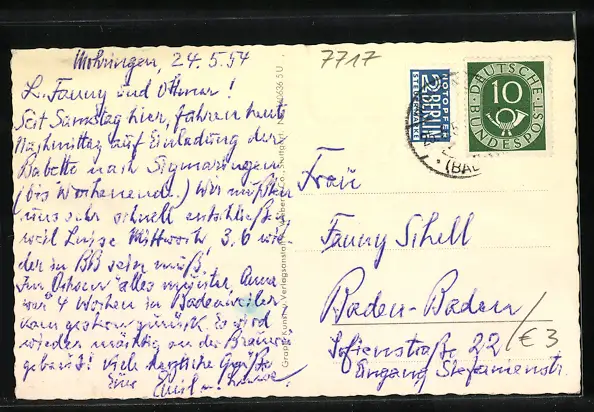 Möhringen, 24.5.54
L. Fanny und Othmar!
Seit Samstag hier, fahren heute
Nachmittag auf Einladung der
Babette nach Sigmaringen
(bis Wochenend.) Wir mußten
uns sehr schnell entschließen
weil Luise Mittwoch, 3.6 wie-
der in BB sein muß.
Im Ochsen alles munter, Anna
war 4 Wochen in Badenweiler
kam gestern zurück. Es wird
wieder mächtig an der Brauerei
gebaut! Viele herzliche Grüße
Eure Emil
7717
NOTOPFER
2 BERLIN
STEUERMARKE
DEUTSCHE
BUNDESPOST
10
(BAD
Frau
Fanny Schell
Baden-Baden
Sofienstraße 22
Eingang Stefanienstr.
€ 3